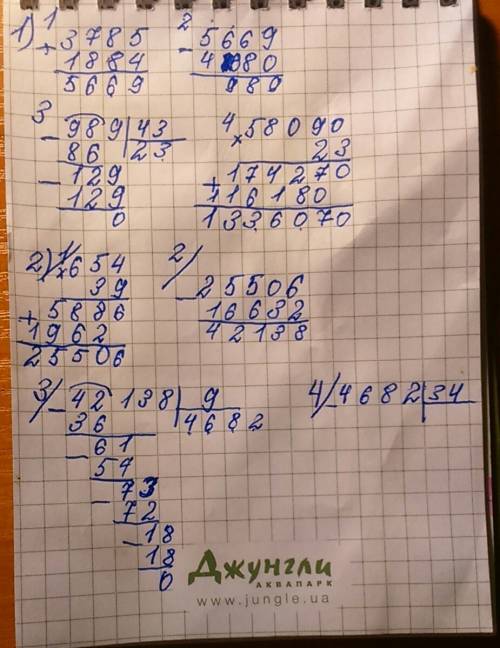 1) 1 + 3785
1884
5669
2 - 5669
4680
980
3 - 989 | 43
86 23
- 129
129
0
4 × 58090
23
+ 174270
116180
1336070
2) 1/ × 654
39
+ 5886
1962
25506
2/ - 25506
16632
42138
3/ - 42138 | 9
36 4682
- 61
54
- 73
72
- 18
18
0
4/ - 4682 | 34
Джунгли
АКВАПАРК
www.jungle.ua